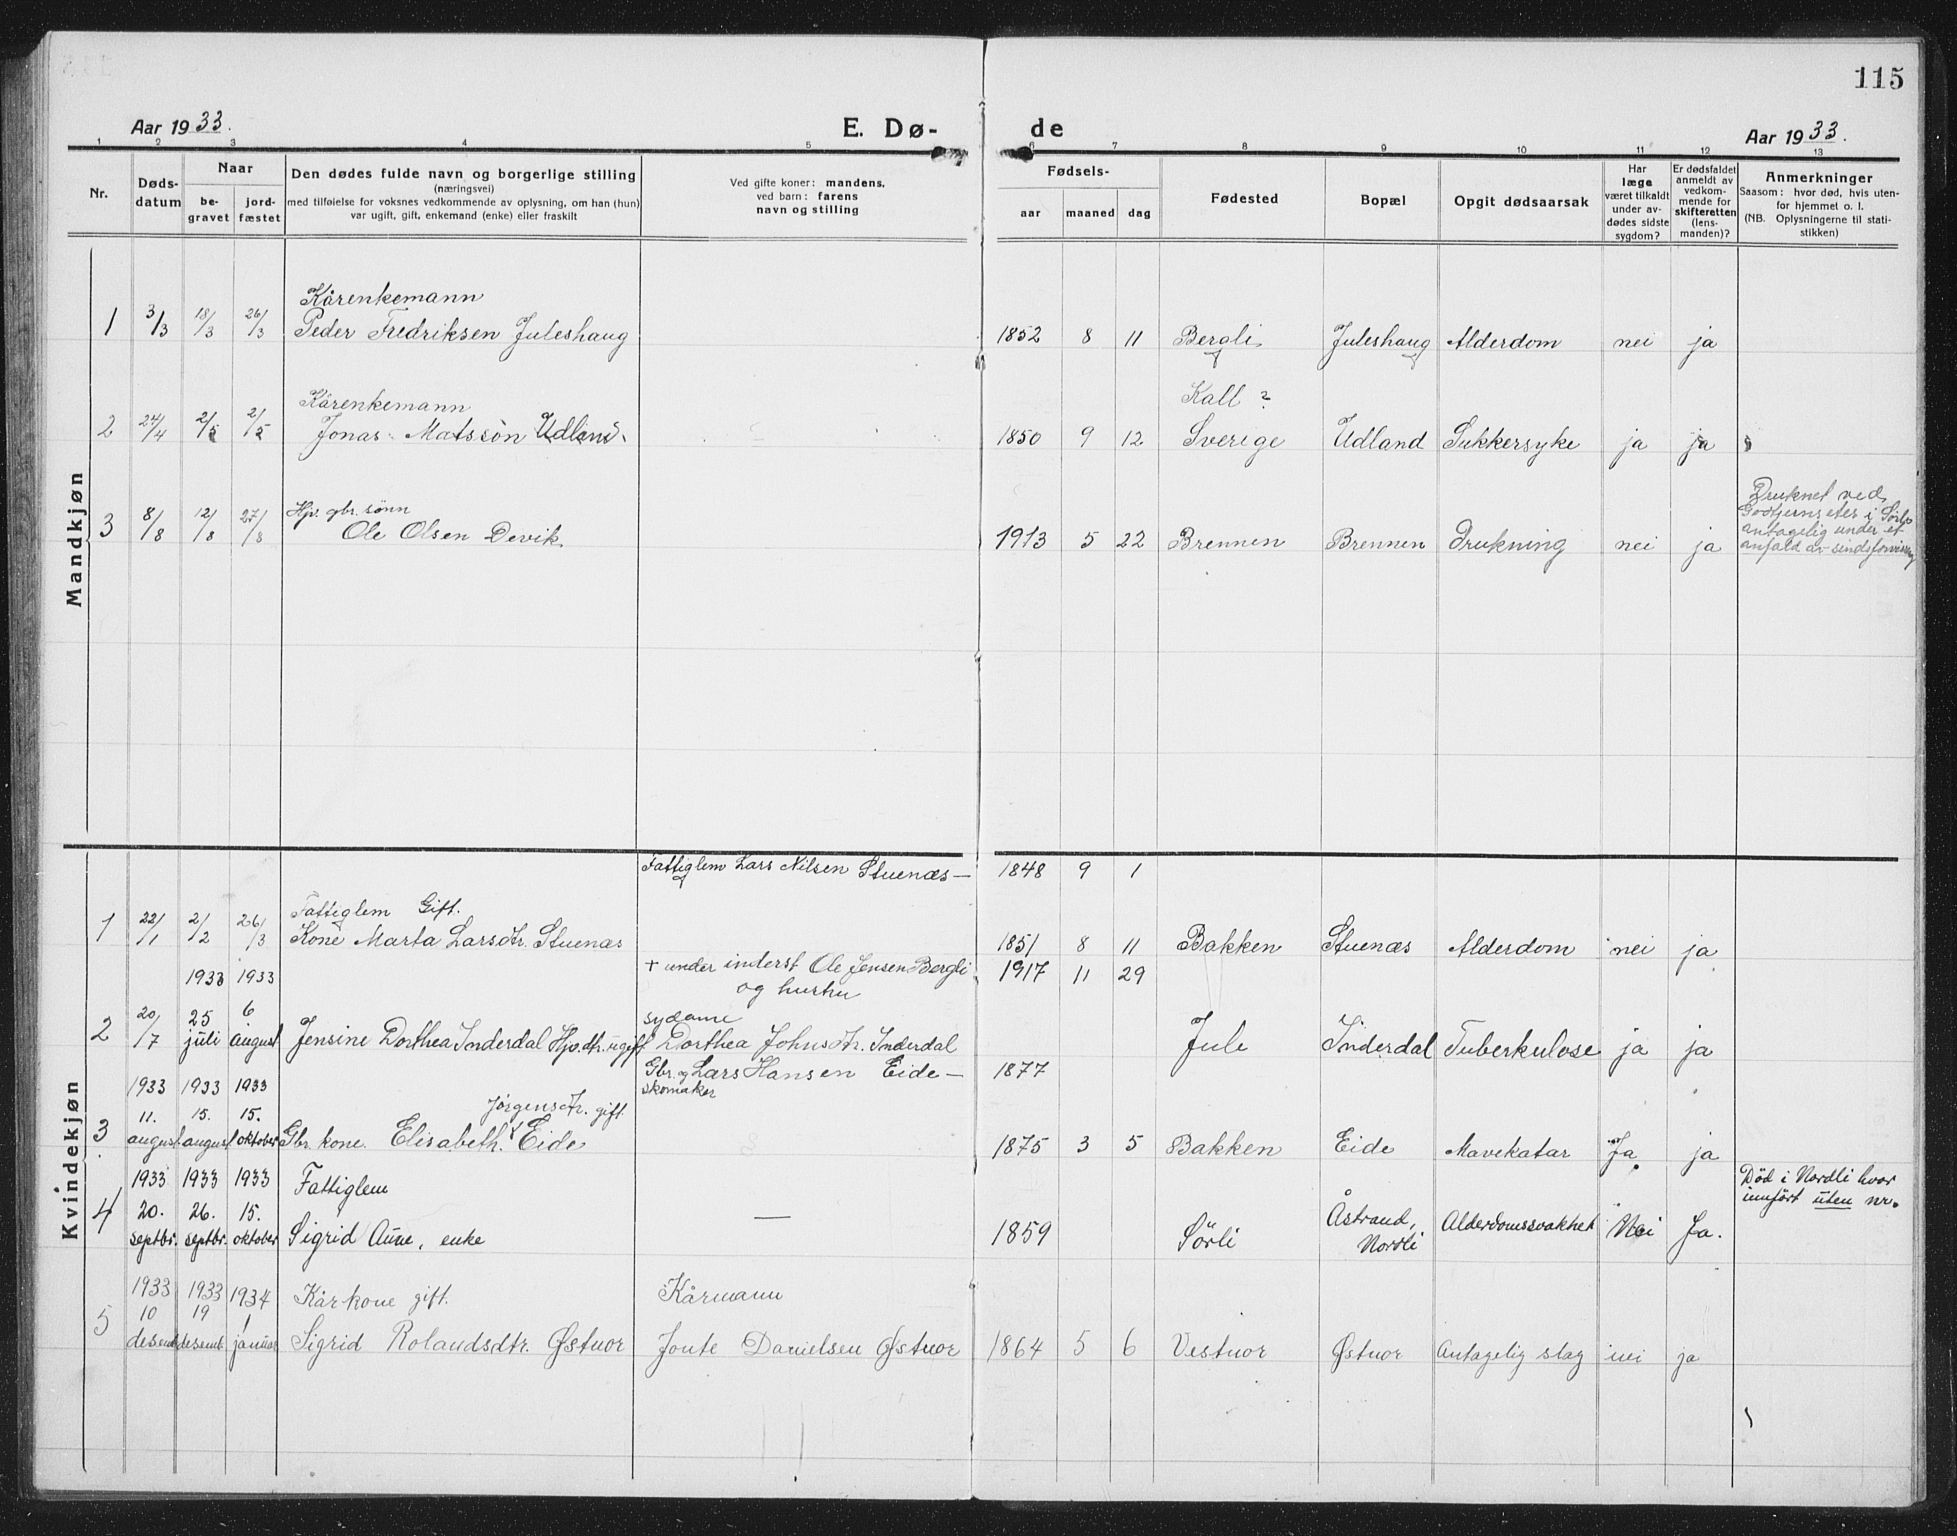 115
Aar 1933.
E. Dø-
de
Aar 1933.
1 2 3 4 5 6 7 8 9 10 11 12 13
Nr.
Døds-
datum
Naar
be-
gravet
jord-
fæstet
Den dødes fulde navn og borgerlige stilling
(næringsvei)
med tilføielse for voksnes vedkommende av oplysning, om han (hun)
var ugift, gift, enkemand (enke) eller fraskilt
Ved gifte koner: mandens,
ved barn: farens
navn og stilling
Fødsels-
aar maaned dag
Fødested
Bopæl
Opgit dødsaarsak
Har
læge
været tilkaldt
under av-
dødes sidste
sygdom?
Er dødsfaldet
anmeldt av
vedkom-
mende for
skifteretten
(lens-
manden)?
Anmerkninger
Saasom: hvor død, hvis uten-
for hjemmet o. l.
(NB. Oplysningerne til stati-
stikken)
Mandkjøn
Kårenkemann
1 3/3 18/3 26/3 Peder Fredriksen Juleshaug 1852 8 11 Bergli Juleshaug Alderdom nei ja
Kårenkemann Kall?
2 24/4 2/5 2/5 Jonas Matssön Udland. 1850 9 12 Sverige Udland Sukkersyke ja ja
Hp. gbr. sönn
3 8/8 12/8 27/8 Ole Olsen Devik 1913 5 22 Brennen Brennen Drukning nei ja
Druknet ved
i Sörli
antagelig under et
anfald av sindsforvirring
Kvindekjøn
Fattiglem Lars Nilsen Stuenæs — 1848 9 1
Fattiglem Gift.
1 22/1 2/2 26/3 Kone Marta Larsdtr. Stuenæs 1851 8 11 Bakken Stuenæs Alderdom nei ja
1933 1933 + under inderst Ole Jensen Bergli 1917 11 29
og hustru
2 20/7 25 juli 6 august Jensine Dorthea Inderdal Hp. dtr. ugift
sydame
Dorthea Johnsdtr. Inderdal Jule Inderdal Tuberkulose ja ja
1933 1933 1933 Gbr. og Lars Hansen Eide — 1877
skomaker
Jørgensdtr. gift
3 11. august 15. august 15. oktober Gbr. kone. Elisabeth Eide 1875 3 5 Bakken Eide Mavekatar Ja ja
1933 1933 1933 Fattiglem
4 20. septbr. 26. septbr. 15. oktober Sigrid Aune, enke — 1859 Sörli Åstrand, Nordli Alderdomssvakhet Nei Ja.
Död i Nordli hvor
innfört uten nr.
1933 1933 1934 Kårkone gift. Kårmann
5 10 desemb. 19 desemb. 1 januar Sigrid Rolandsdtr. Østnor Jonte Danielsen Østnor 1864 5 6 Vestnor Østnor Antagelig slag nei ja